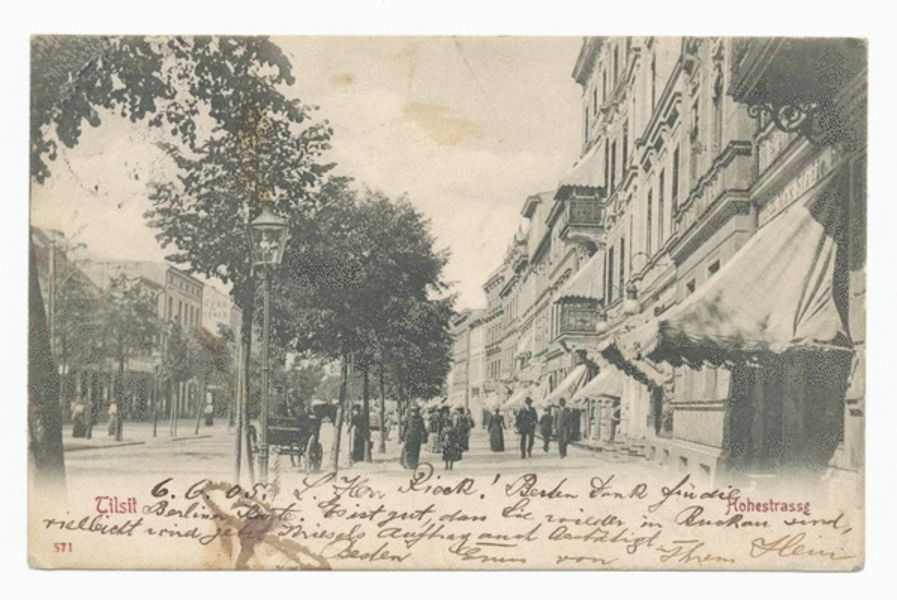 6. 6. 05. L. Herr Rieck! Besten Dank für die
Tilsit
Hohestrasse
Berliner Karte. Es ist gut, dass Sie wieder in Buckau sind,
vielleicht wird jetzt Thiesels Auftrag auch bestätigt
Besten Gruss von Ihrem Hein
571